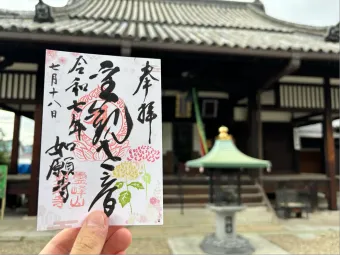 奉拝
聖観世音
令和七年
如願寺
七月十八日